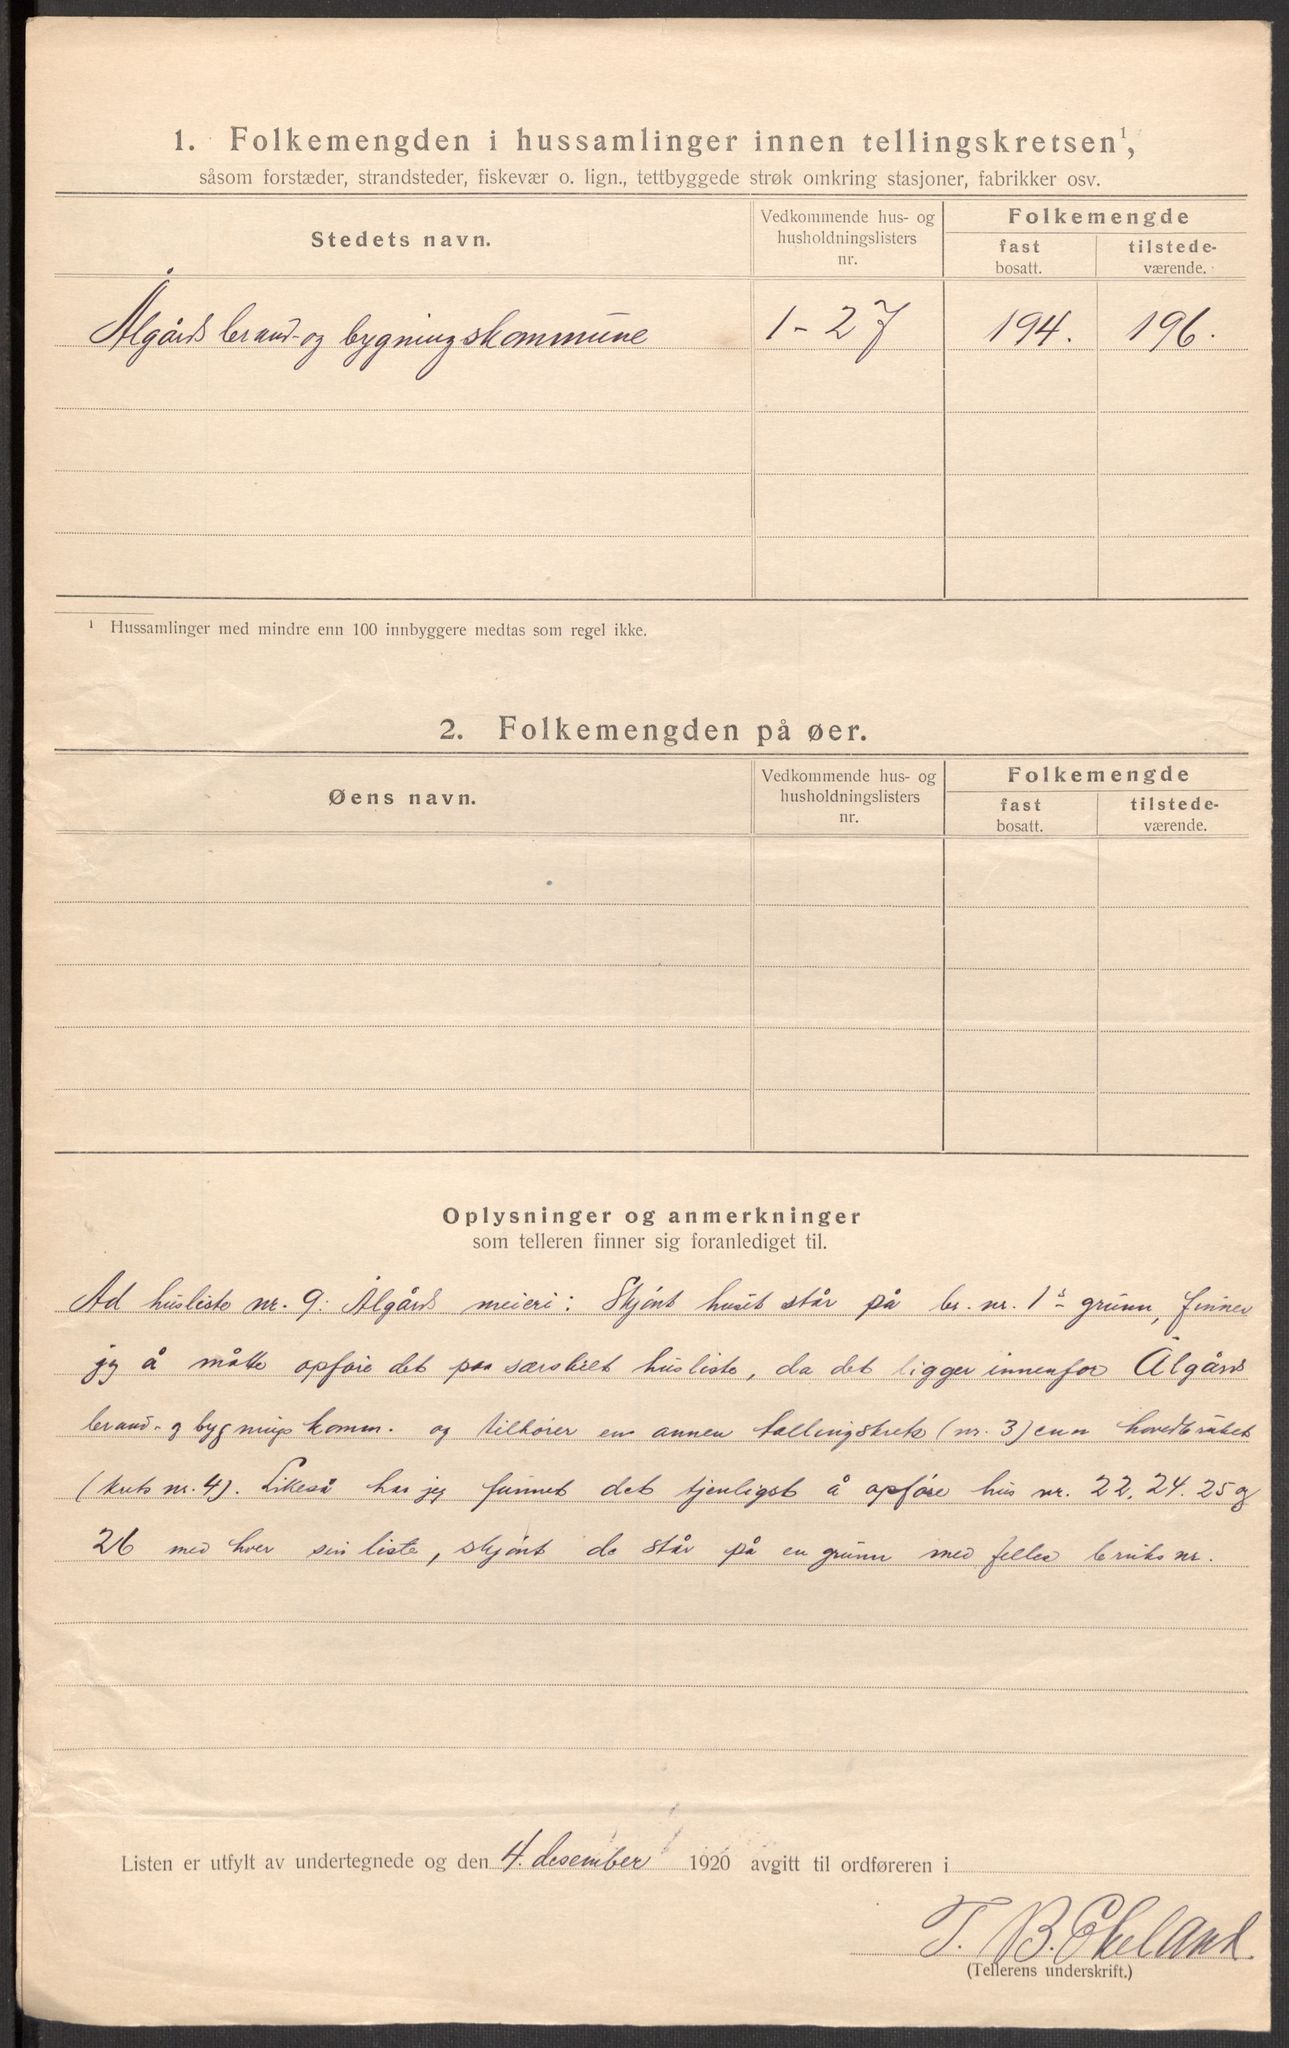 1. Folkemengden i hussamlinger innen tellingskretsen¹,
såsom forstæder, strandsteder, fiskevær o. lign., tettbyggede strøk omkring stasjoner, fabrikker osv.
Stedets navn.
Vedkommende hus- og husholdningslisters nr.
Folkemengde
fast bosatt.
tilstede-værende.
Ålgårds brand- og bygningskommune 1-27 194. 196.
¹ Hussamlinger med mindre enn 100 innbyggere medtas som regel ikke.
2. Folkemengden på øer.
Øens navn.
Vedkommende hus- og husholdningslisters nr.
Folkemengde
fast bosatt.
tilstede-værende.
Oplysninger og anmerkninger
som telleren finner sig foranlediget til.
Ad husliste nr. 9: Ålgårds meieri: Skjønt huset står på br. nr. 1s grunn, finner
jeg å måtte opføre det paa særskilt husliste, da det ligger innenfor Ålgårds
brand- og bygnings komm. og tilhører en annen tellingskrets (nr. 3) enn hovedbruket
(krets nr. 4). Likeså har jeg funnet det tjenligst å opføre hus nr. 22, 24. 25 og
26 med hver sin liste, skjønt de står på en grunn med felles bruks nr.
Listen er utfylt av undertegnede og den 4. desember 1920 avgitt til ordføreren i
T. B. Ekeland
(Tellerens underskrift.)